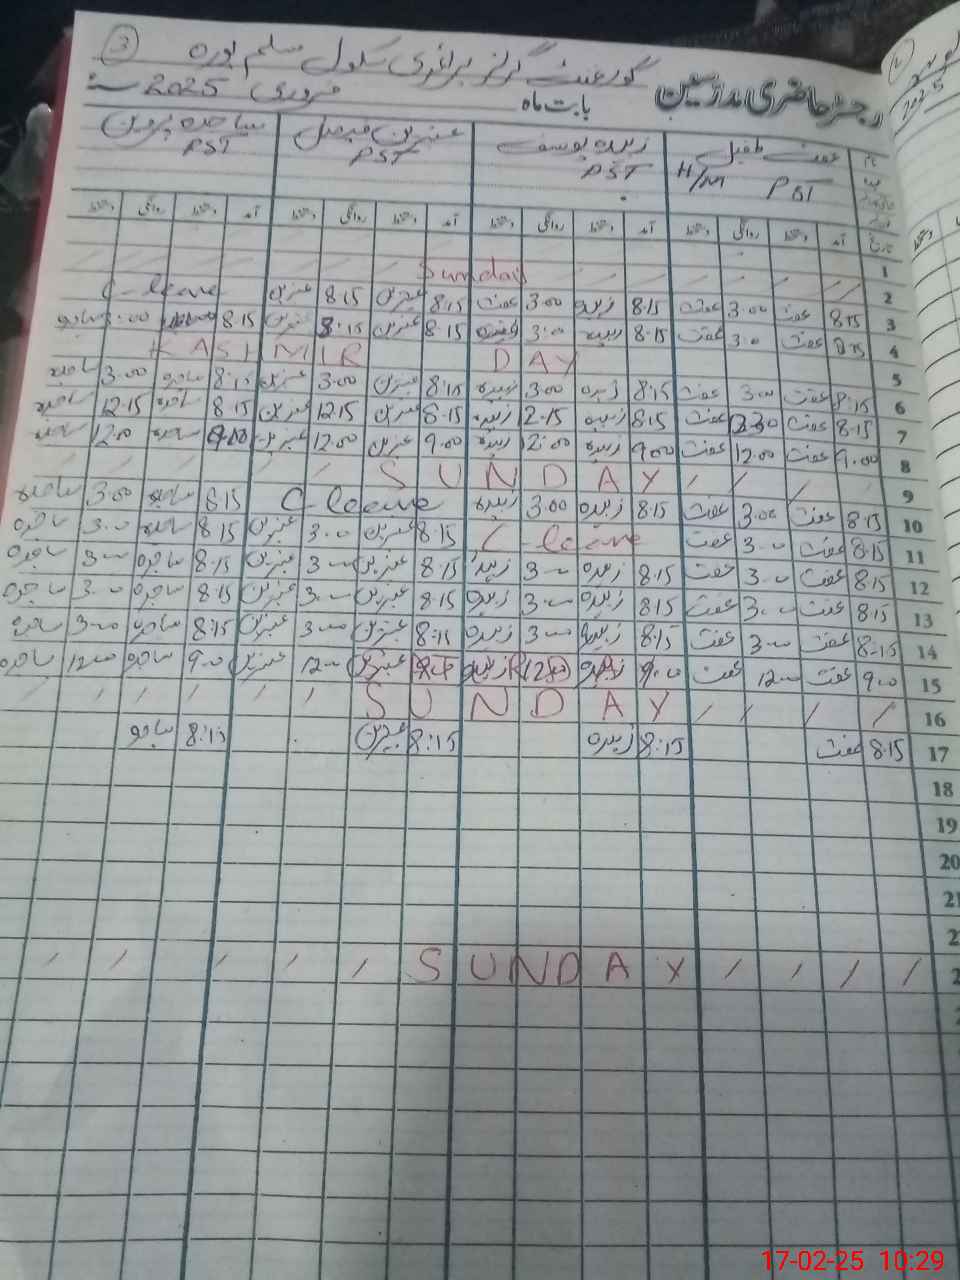 3
گورنمنٹ گرلز پرائمری سکول سلیم پورہ
رجسٹر حاضری مدرسین بابت ماہ فروری 2025
عفت طفیل زبیدہ یوسف عنبرین فیصل ساجدہ پروین
H/M PST PST PST PST
تاریخ آمد دستخط روانگی دستخط آمد دستخط روانگی دستخط آمد دستخط روانگی دستخط آمد دستخط روانگی دستخط
1
2 Sunday
3 8.15 عفت 3.00 عفت 8.15 زبیدہ 3.00 8.15 عنبرین 8.15 عنبرین C-leave
4 8.15 عفت 3.0 عفت 8.15 زبیدہ 3.0 8.15 عنبرین 8:15 عنبرین 8.15 ساجدہ
5 KASHMIR DAY
6 8:15 عفت 3.00 عفت 8.15 زبیدہ 3.00 زبیدہ 8:15 عنبرین 3.00 عنبرین 8:15 ساجدہ 3.00 ساجدہ
7 8.15 عفت عفت 8.15 زبیدہ 12.15 زبیدہ 8.15 عنبرین 12.15 عنبرین 8.15 ساجدہ 12.15 ساجدہ
8 9.00 عفت 12.00 عفت 9.00 زبیدہ 12.00 زبیدہ 9.00 عنبرین 12.00 عنبرین 9.00 ساجدہ 12.00 ساجدہ
9 SUNDAY
10 8.15 عفت 3.00 عفت 8.15 زبیدہ 3.00 زبیدہ C-leave 8.15 ساجدہ 3.00 ساجدہ
11 8.15 عفت 3.00 عفت C-leave 8.15 عنبرین 3.00 عنبرین 8.15 ساجدہ 3.00 ساجدہ
12 8.15 عفت 3.00 عفت 8.15 زبیدہ 3.00 زبیدہ 8.15 عنبرین 3.00 عنبرین 8.15 ساجدہ 3.00 ساجدہ
13 8.15 عفت 3.00 عفت 8.15 زبیدہ 3.00 زبیدہ 8.15 عنبرین 3.00 عنبرین 8.15 ساجدہ 3.00 ساجدہ
14 8.15 عفت 3.00 عفت 8.15 زبیدہ 3.00 زبیدہ 8:15 عنبرین 3.00 عنبرین 8:15 ساجدہ 3.00 ساجدہ
15 9.00 عفت 12.00 عفت 9.00 زبیدہ زبیدہ عنبرین 12.00 عنبرین 9.00 ساجدہ 12.00 ساجدہ
16 SUNDAY
17 8.15 عفت 8:15 زبیدہ 8:15 عنبرین 8:15 ساجدہ
18
19
20
21
2
2 SUNDAY
17-02-25 10:29